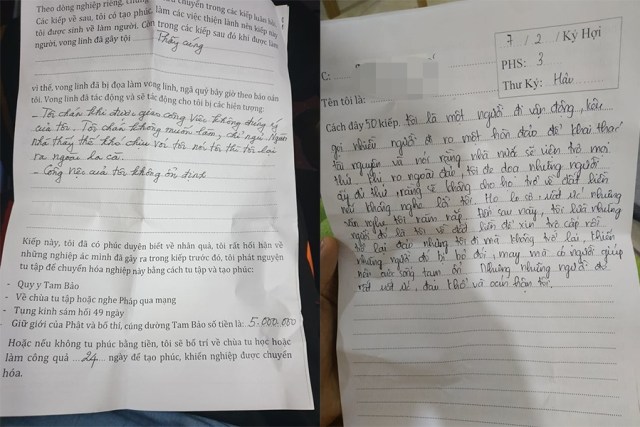 Theo dòng nghiệp riêng, chúng chuyển trong các kiếp luân hồi.
Các kiếp về sau, tôi có tạo phúc, làm các việc thiện lành nên kiếp này
tôi được sinh về làm người. Còn trong các kiếp sau đó khi được làm
người, vong linh đã gây tội Phầy cúng
vì thế, vong linh đã bị đọa làm vong linh, ngả quỷ bây giờ theo báo oán
tôi. Vong linh đã tác động và sẽ tác động cho tôi bị các hiện tượng:
- Tôi chán khi được giao công việc không đúng ý
của tôi. Tôi chán không muốn làm, chỉ ngủ. Người
nhà thấy thế khó chịu với tôi nói tôi thì tôi lại
ra ngoài la cà.
- Công việc của tôi không ổn định
Kiếp này, tôi đã có phúc duyên biết về nhân quả, tôi rất hối hận về
những nghiệp ác mình đã gây ra trong kiếp trước đó, tôi phát nguyện
tu tập để chuyển hóa nghiệp này bằng cách tu tập và tạo phúc:
- Quy y Tam Bảo
- Về chùa tu tập hoặc nghe Pháp qua mạng
- Tụng kinh sám hối 49 ngày
Giữ giới của Phật và bố thí, cúng dường Tam Bảo số tiền là: 5.000.000
Hoặc nếu không tu phúc bằng tiền, tôi sẽ bố trí về chùa tu học hoặc
làm công quả ...24... ngày để tạo phúc, khiến nghiệp được chuyển
hóa.
7 / 2 / Kỷ Hợi
PHS: 3
Thư Ký: Hậu
C:
Tên tôi là:
Cách đây 50 kiếp, tôi là một người đi vận động, kêu
gọi nhiều người đi ra một hòn đảo để khai thác
tài nguyên và nói rằng nhà nước sẽ viện trợ mọi
thứ. Khi ra ngoài đảo, tôi đe dọa những người
ấy đủ thứ, rằng sẽ không cho họ trở về đất liền
nếu không nghe lời tôi. Họ lo sợ, uất ức nhưng
vẫn nghe tôi răm rắp. Đến sau này, tôi lừa những
người đó là tôi về đất liền để xin trợ cấp rồi
trở lại đảo nhưng tôi đi mà không trở lại, khiến
những người đó bị bỏ đói, may mà có người giúp
nên cuộc sống tạm ổn. Nhưng những người đó
rất uất ức, đau khổ và oán hận tôi.